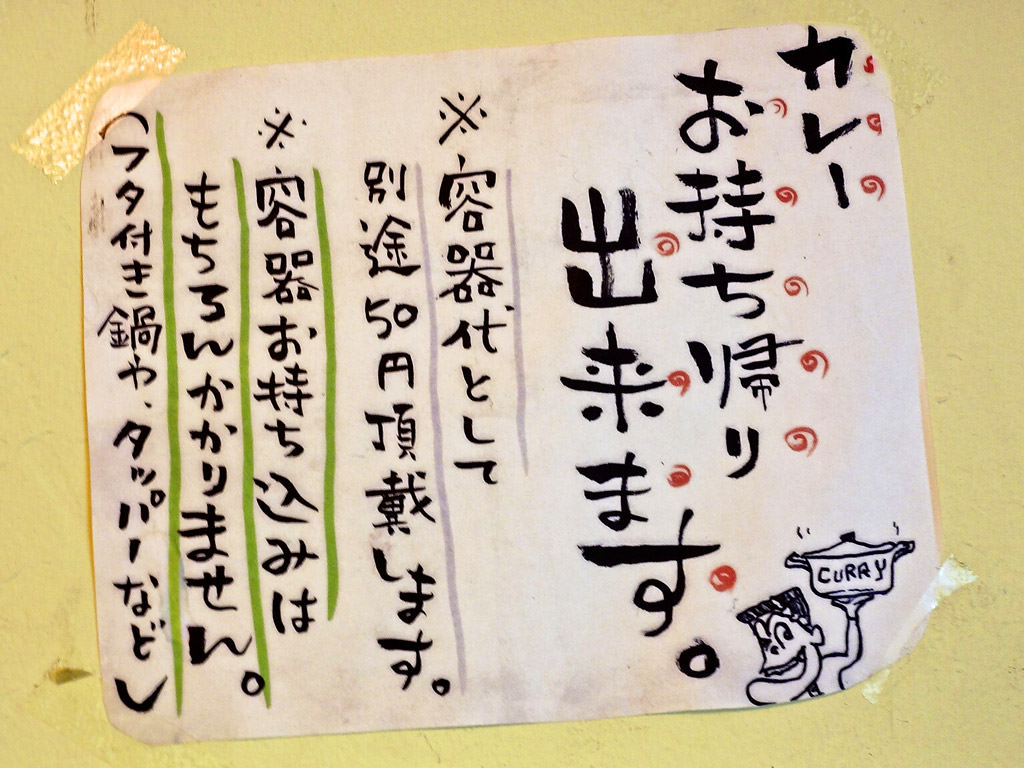 カレー
お持ち帰り
出来ます。
※容器代として
別途50円頂戴します。
※容器お持ち込みは
もちろんかかりません。
(フタ付き鍋や、タッパーなど)
CURRY